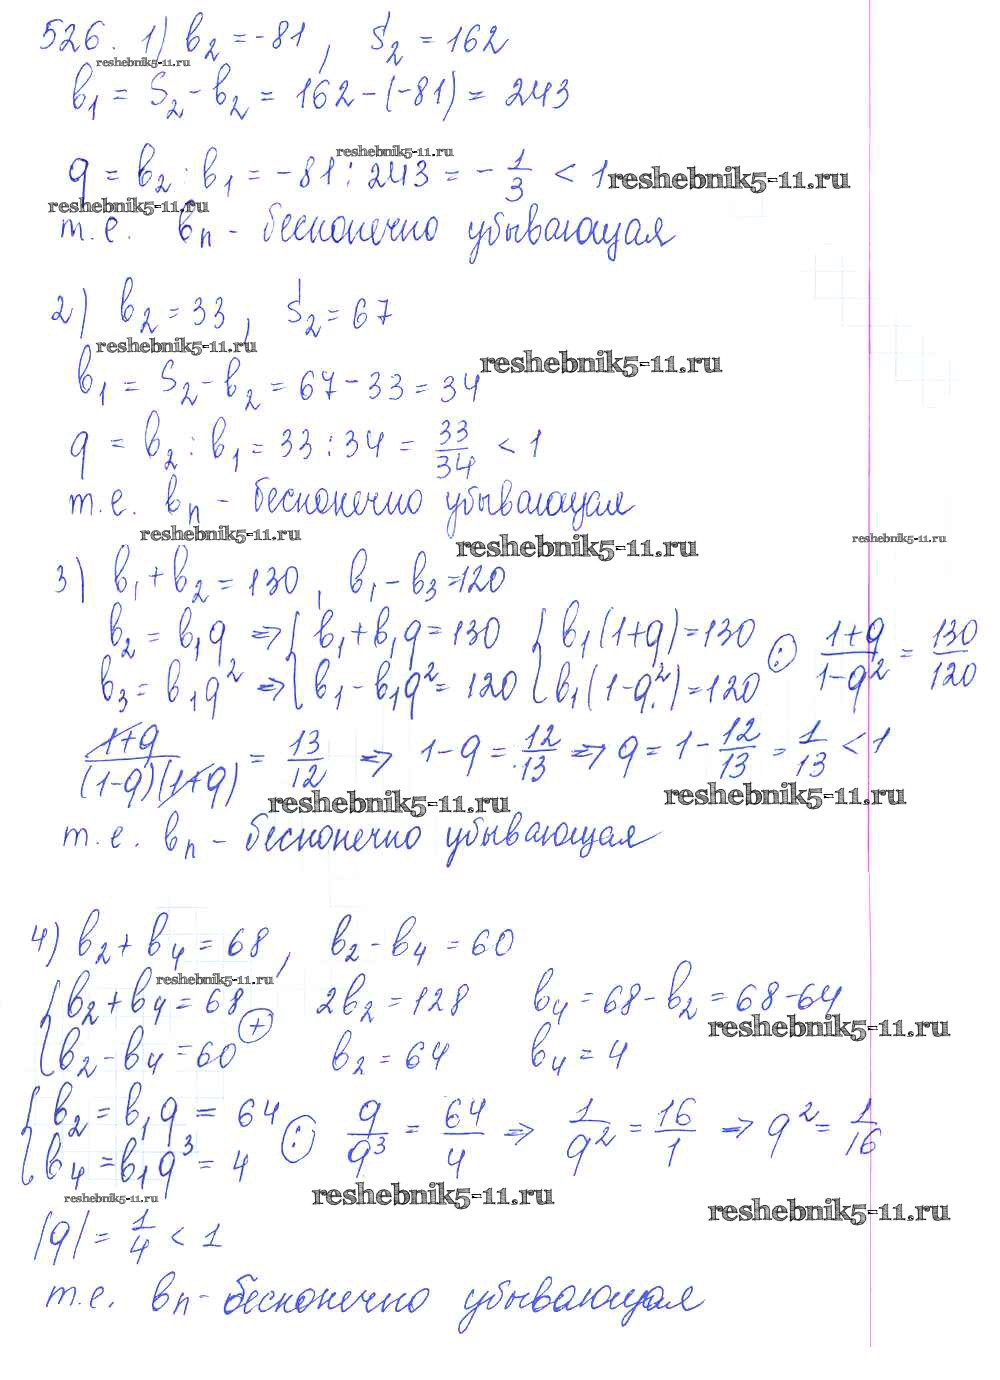 526. 1) b₂ = -81, S₂ = 162
reshebnik5-11.ru
b₁ = S₂ - b₂ = 162 - (-81) = 243
reshebnik5-11.ru
q = b₂ : b₁ = -81 : 243 = -1/3 < 1
reshebnik5-11.ru
reshebnik5-11.ru
т.е. bn - бесконечно убывающая
2) b₂ = 33, S₂ = 67
reshebnik5-11.ru
reshebnik5-11.ru
b₁ = S₂ - b₂ = 67 - 33 = 34
q = b₂ : b₁ = 33 : 34 = 33/34 < 1
т.е. bn - бесконечно убывающая
reshebnik5-11.ru
reshebnik5-11.ru
reshebnik5-11.ru
3) b₁ + b₂ = 130, b₁ - b₃ = 120
b₂ = b₁q => { b₁ + b₁q = 130 { b₁(1+q) = 130 (:) (1+q)/(1-q²) = 130/120
b₃ = b₁q² => { b₁ - b₁q² = 120 { b₁(1-q²) = 120
(1+q)/((1-q)(1+q)) = 13/12 => 1 - q = 12/13 => q = 1 - 12/13 = 1/13 < 1
reshebnik5-11.ru
reshebnik5-11.ru
т.е. bn - бесконечно убывающая
4) b₂ + b₄ = 68, b₂ - b₄ = 60
reshebnik5-11.ru
{ b₂ + b₄ = 68 (+) 2b₂ = 128 b₄ = 68 - b₂ = 68 - 64
reshebnik5-11.ru
{ b₂ - b₄ = 60 b₂ = 64 b₄ = 4
{ b₂ = b₁q = 64 (:) q/q³ = 64/4 => 1/q² = 16/1 => q² = 1/16
{ b₄ = b₁q³ = 4
reshebnik5-11.ru
reshebnik5-11.ru
reshebnik5-11.ru
|q| = 1/4 < 1
т.е. bn - бесконечно убывающая